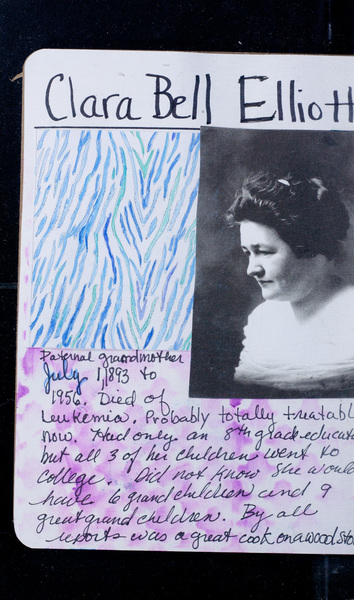 Clara Bell Elliott
Paternal grandmother
July 1, 1893 to
1956. Died of
Leukemia. Probably totally treatabl
now. Had only an 8th grade educat
but all 3 of her children went to
college. Did not know she would
have 6 grandchildren and 9
great grandchildren. By all
reports was a great cook on a wood sto